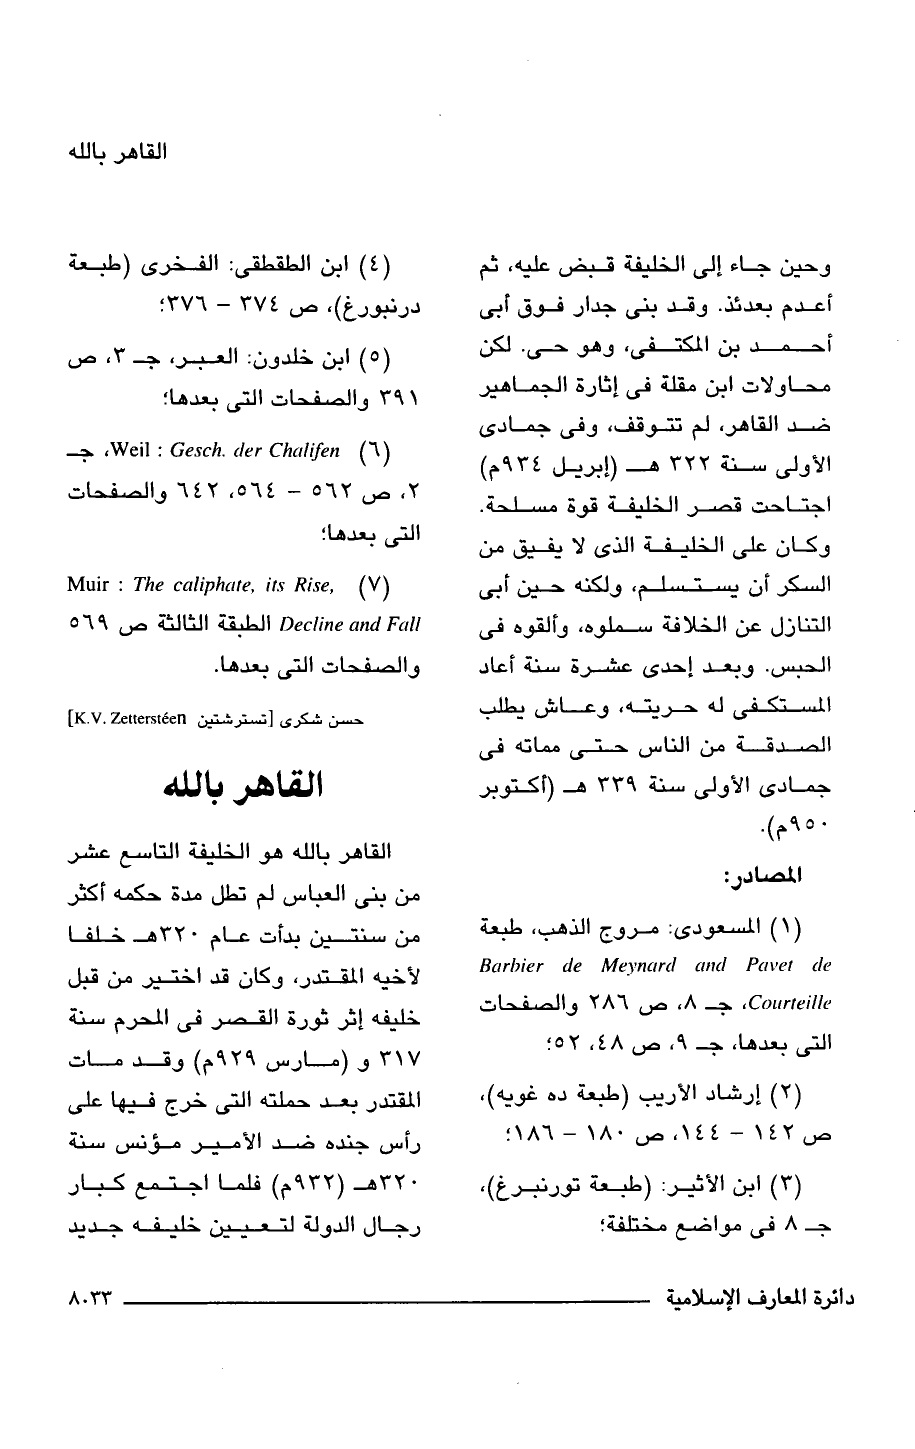 القاهر بالله
وحين جاء إلى الخليفة قبض عليه، ثم
أعدم بعدئذ. وقد بنى جدار فوق أبى
أحمد بن المكتفى، وهو حى. لكن
محاولات ابن مقلة فى إثارة الجماهير
ضد القاهر، لم تتوقف، وفى جمادى
الأولى سنة ٣٢٢ هـ (إبريل ٩٣٤م)
اجتاحت قصر الخليفة قوة مسلحة.
وكان على الخليفة الذى لا يفيق من
السكر أن يستسلم، ولكنه حين أبى
التنازل عن الخلافة سملوه، وألقوه فى
الحبس. وبعد إحدى عشرة سنة أعاد
المستكفى له حريته، وعاش يطلب
الصدقة من الناس حتى مماته فى
جمادى الأولى سنة ٣٣٩ هـ (أكتوبر
٩٥٠م).
المصادر:
(١) المسعودى: مروج الذهب، طبعة
Barbier de Meynard and Pavet de
Courteille، جـ ٨، ص ٢٨٦ والصفحات
التى بعدها، جـ ٩، ص ٤٨، ٥٢؛
(٢) إرشاد الأريب (طبعة ده غويه)،
ص ١٤٢ – ١٤٤، ص ١٨٠ – ١٨٦؛
(٣) ابن الأثير: (طبعة تورنبرغ)،
جـ ٨ فى مواضع مختلفة؛
(٤) ابن الطقطقى: الفخرى (طبعة
درنبورغ)، ص ٣٧٤ – ٣٧٦؛
(٥) ابن خلدون: العبر، جـ ٣، ص
٣٩١ والصفحات التى بعدها؛
(٦) Weil : Gesch. der Chalifen، جـ
٢، ص ٥٦٢ – ٥٦٤، ٦٤٢ والصفحات
التى بعدها؛
(٧) Muir : The caliphate, its Rise,
Decline and Fall الطبقة الثالثة ص ٥٦٩
والصفحات التى بعدها.
حسن شكرى [تسترشتين K.V. Zetterstéen]
القاهر بالله
القاهر بالله هو الخليفة التاسع عشر
من بنى العباس لم تطل مدة حكمه أكثر
من سنتين بدأت عام ٣٢٠هـ خلفا
لأخيه المقتدر، وكان قد اختير من قبل
خليفه إثر ثورة القصر فى المحرم سنة
٣١٧ و (مارس ٩٢٩م) وقد مات
المقتدر بعد حملته التى خرج فيها على
رأس جنده ضد الأمير مؤنس سنة
٣٢٠هـ (٩٣٢م) فلما اجتمع كبار
رجال الدولة لتعيين خليفه جديد
دائرة المعارف الإسلامية ٨٠٣٣